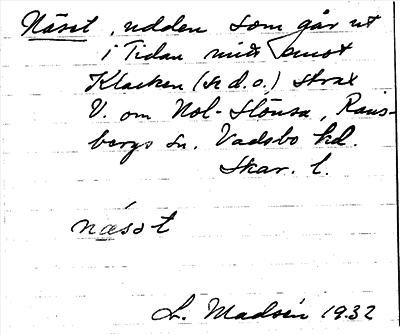 Näset, udden som går ut
i Tidan midt emot
Klacken (se d.o.) strax
V. om Nol-Stönsa, Räns-
bergs sn. Vadsbo hd.
Skar. l.
næsət
L. Madsén 1932